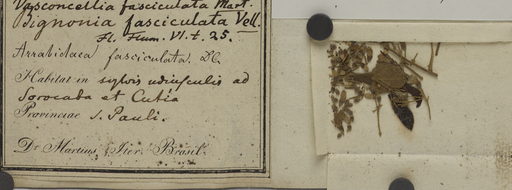 Vasconcellia fasciculata Mart.
Bignonia fasciculata Vell.
Fl. Flum. VI. t. 25.
Arrabidaea fasciculata. DC.
Habitat in sylvis udiusculis ad
Sorocaba et Cutia
Provinciae S. Pauli.
Dr Martius Iter Brasil.